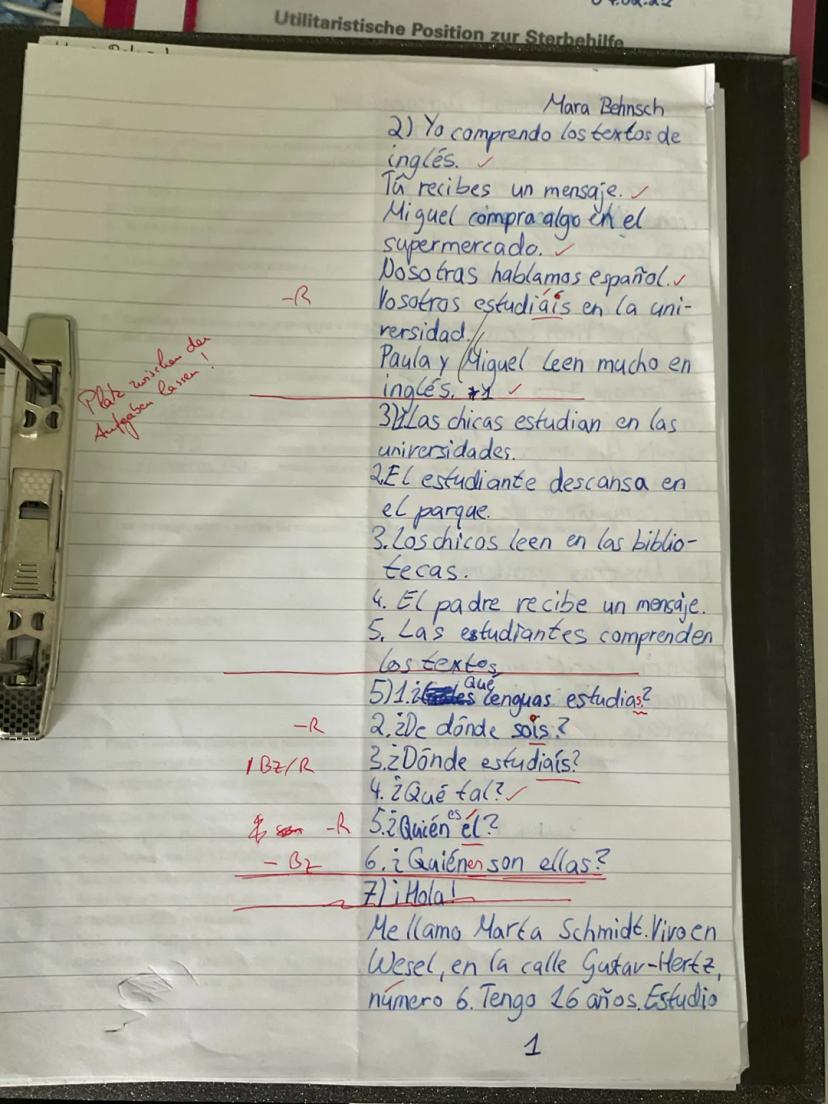 Utilitaristische Position zur Sterbehilfe
Mara Behnsch
2) Yo comprendo los textos de
inglés. ✓
Tú recibes un mensaje. ✓
Miguel compra algo en el
supermercado. ✓
Nosotras hablamos español. ✓
-R Vosotros estudiáis en la uni-
versidad.
Paula y Miguel leen mucho en
inglés. *1 ✓
Platz zwischen den
Aufgaben lassen!
3) 1. Las chicas estudian en las
universidades.
2. El estudiante descansa en
el parque.
3. Los chicos leen en las biblio-
tecas.
4. El padre recibe un mensaje.
5. Las estudiantes comprenden
los textos.
5) 1. ¿Qué lenguas estudias?
-R 2. ¿De dónde sois?
1 Bz/R 3. ¿Dónde estudiaís?
4. ¿Qué tal? ✓
-R 5. ¿Quién es él?
- Bz 6. ¿Quiénen son ellas?
7) ¡Hola!
Me llamo Marta Schmidt. Vivo en
Wesel, en la calle Gustav-Hertz,
número 6. Tengo 16 años. Estudio
1